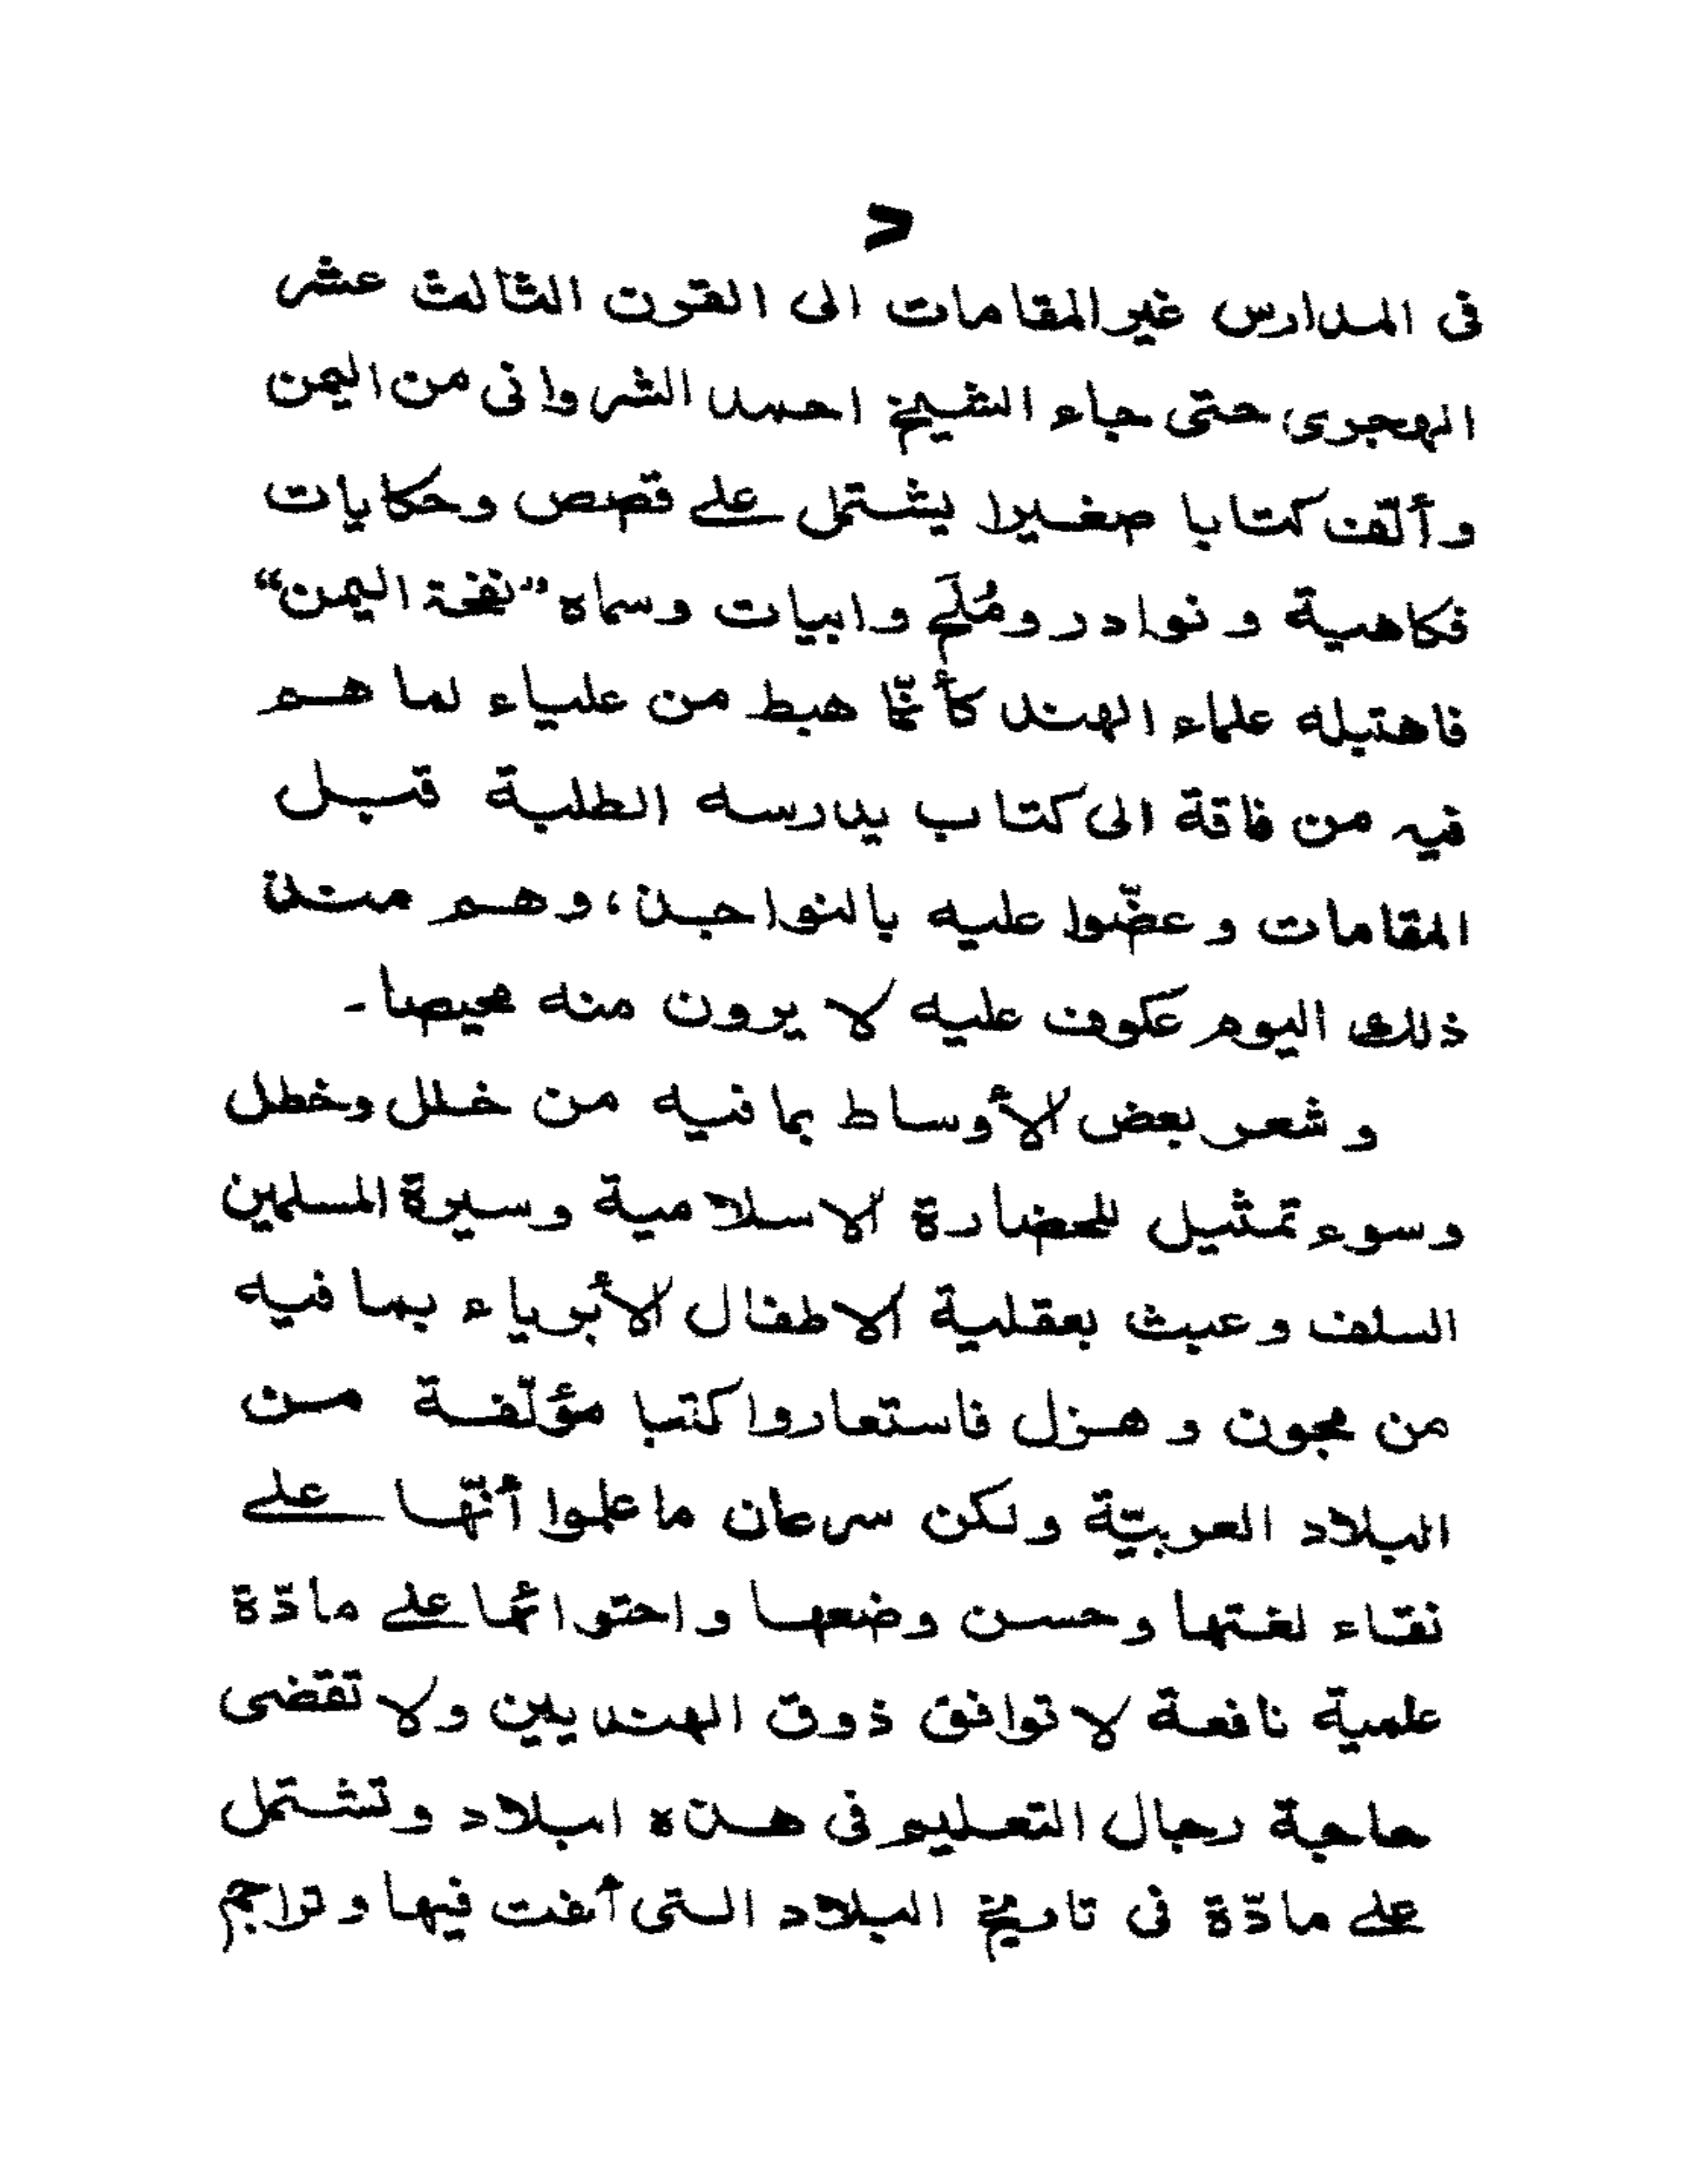 د
فى المدارس غير المقامات الى القرن الثالث عشر
الهجرى حتى جاء الشيخ احمد الشروانى من اليمن
وألّف كتابا صغيرا يشتمل على قصص وحكايات
فكاهية و نوادر ومُلَح وابيات وسماه "نفحة اليمن"
فاهتبله علماء الهند كأنّما هبط من علياء لما هم
فيه من فاقة الى كتاب يدارسه الطلبة قبل
المقامات و عضّوا عليه بالنواجذ، وهم منذ
ذلك اليوم عكوف عليه لا يرون منه محيصا-
و شعر بعض الأوساط بما فيه من خلل وخطل
وسوء تمثيل للحضارة الاسلامية وسيرة المسلمين
السلف وعبث بعقلية الاطفال الأبرياء بما فيه
من مجون و هزل فاستعاروا كتبا مؤلّفة من
البلاد العربيّة ولكن سرعان ما علموا أنّها على
نقاء لغتها وحسن وضعها واحتوائها على مادّة
علمية نافعة لا توافق ذوق الهنديين ولا تقضى
حاجة رجال التعليم فى هذه البلاد وتشتمل
على مادّة فى تاريخ البلاد التى ألفت فيها وتراجم